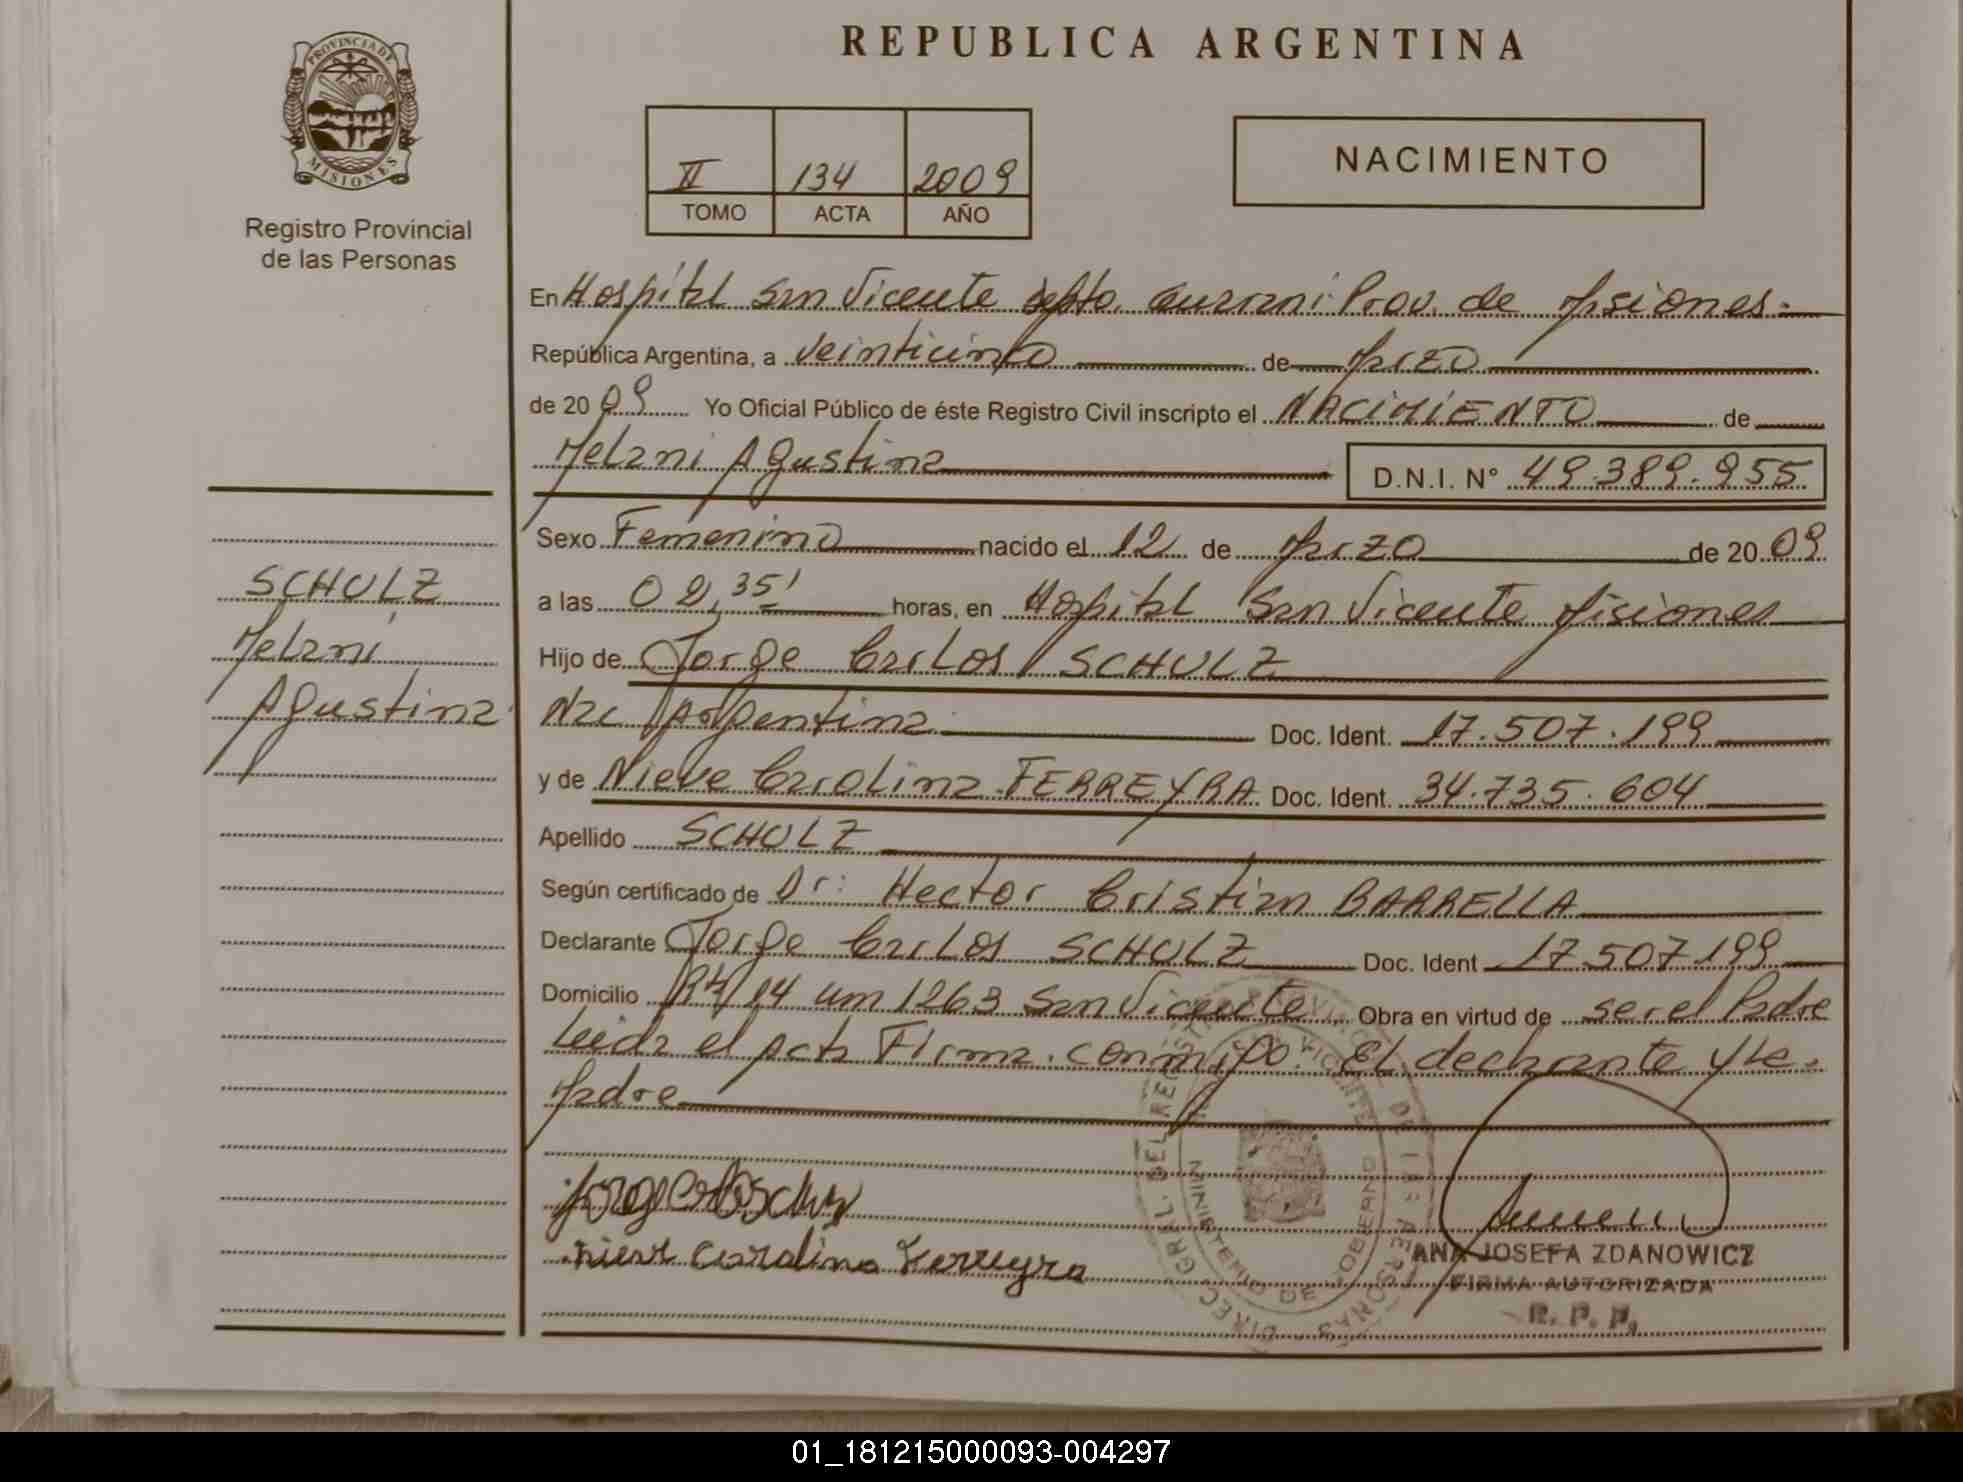 REPUBLICA ARGENTINA
PROVINCIA DE MISIONES
Registro Provincial
de las Personas
II 134 2009
TOMO ACTA AÑO
NACIMIENTO
En Hospital San Vicente depto. Guarani Prov. de Misiones.
República Argentina, a veinticinco de Marzo
de 2009 Yo Oficial Público de éste Registro Civil inscripto el NACIMIENTO de
Melani Agustina D.N.I. N° 49.389.955
Sexo Femenino nacido el 12 de Marzo de 2009
a las 02,35' horas, en Hospital San Vicente Misiones
Hijo de Jorge Carlos SCHULZ
Nac Argentina Doc. Ident. 17.507.199
y de Nieve Carolina FERREYRA Doc. Ident. 34.735.604
Apellido SCHULZ
Según certificado de Dr: Hector Cristian BARRELLA
Declarante Jorge Carlos SCHULZ Doc. Ident 17.507.199
Domicilio 14 1263 San Vicente Obra en virtud de ser el Padre
Leida el acta Firma conmigo El declarante y la
Madre
SCHULZ
Melani
Agustina
Nieve Carolina Ferreyra
ANA JOSEFA ZDANOWICZ
FIRMA AUTORIZADA
R. P. P.
MINISTERIO DE GOBIERNO
01_181215000093-004297